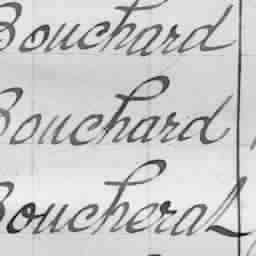 Bouchard
Bouchard
Boucheral